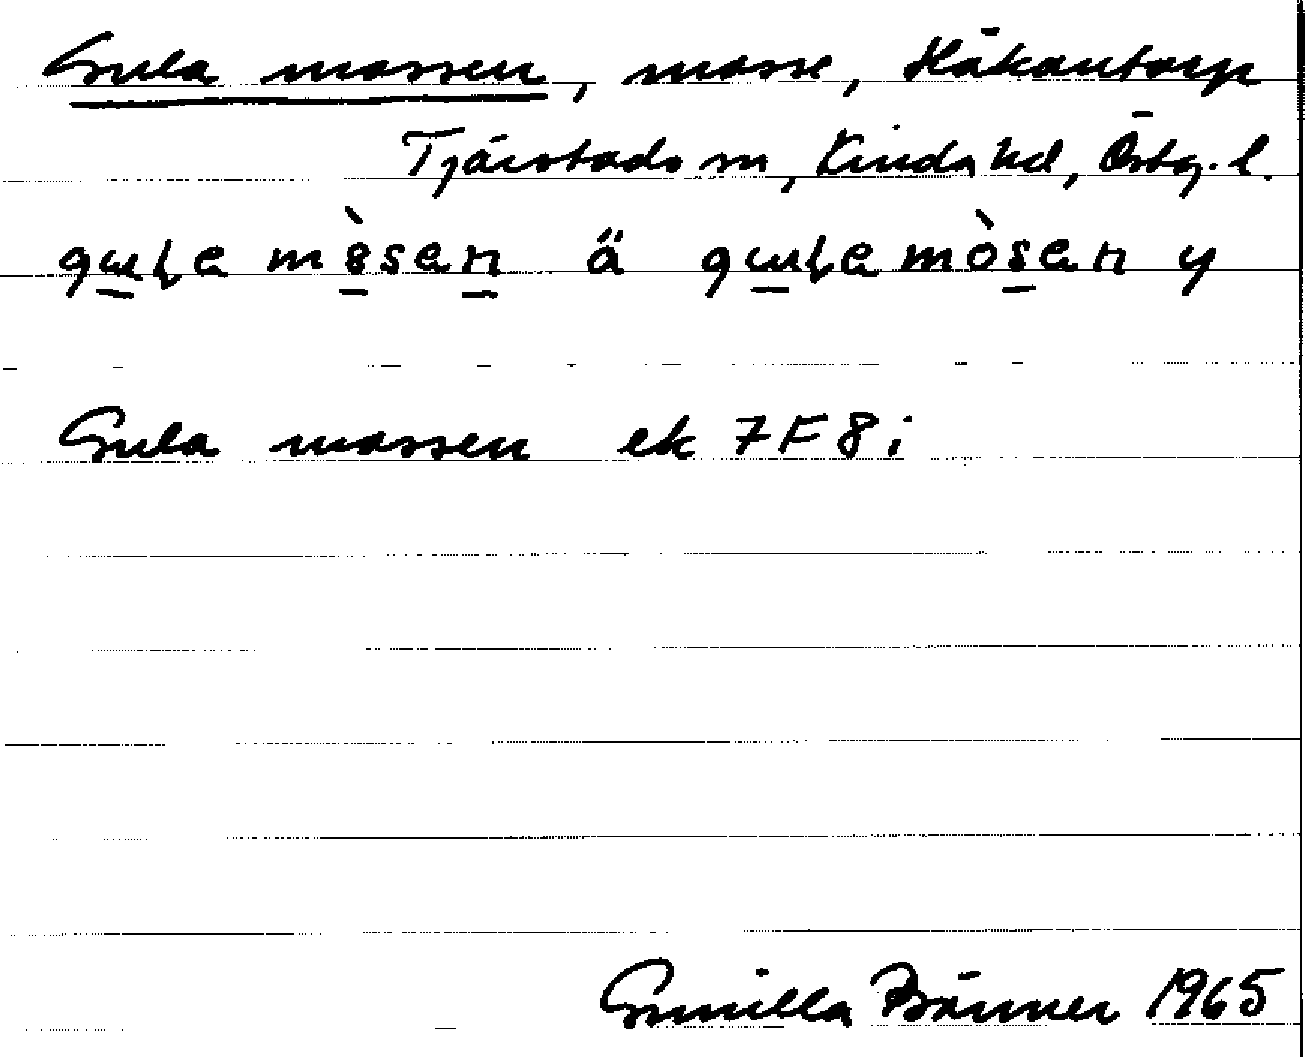 Gula mossen, mosse, Håkantorp
Tjärstads sn, Kinda hd, Östg. l.
gɯɽa mòsen ä gɯɽa mòsen y
Gula mossen ek 7F8i
Gunilla Bänner 1965